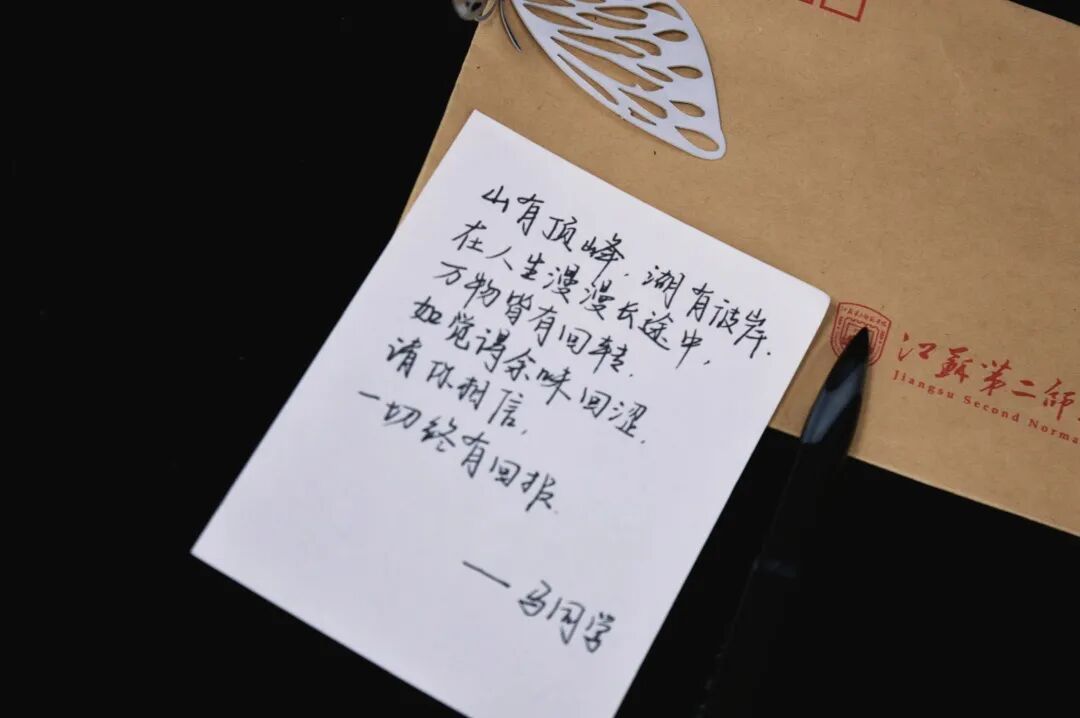 山有顶峰,湖有彼岸.
在人生漫漫长途中,
万物皆有回转.
如觉得余味回涩.
请你相信,
一切终有回报.
——马同学
江苏第二师
Jiangsu Second Norma